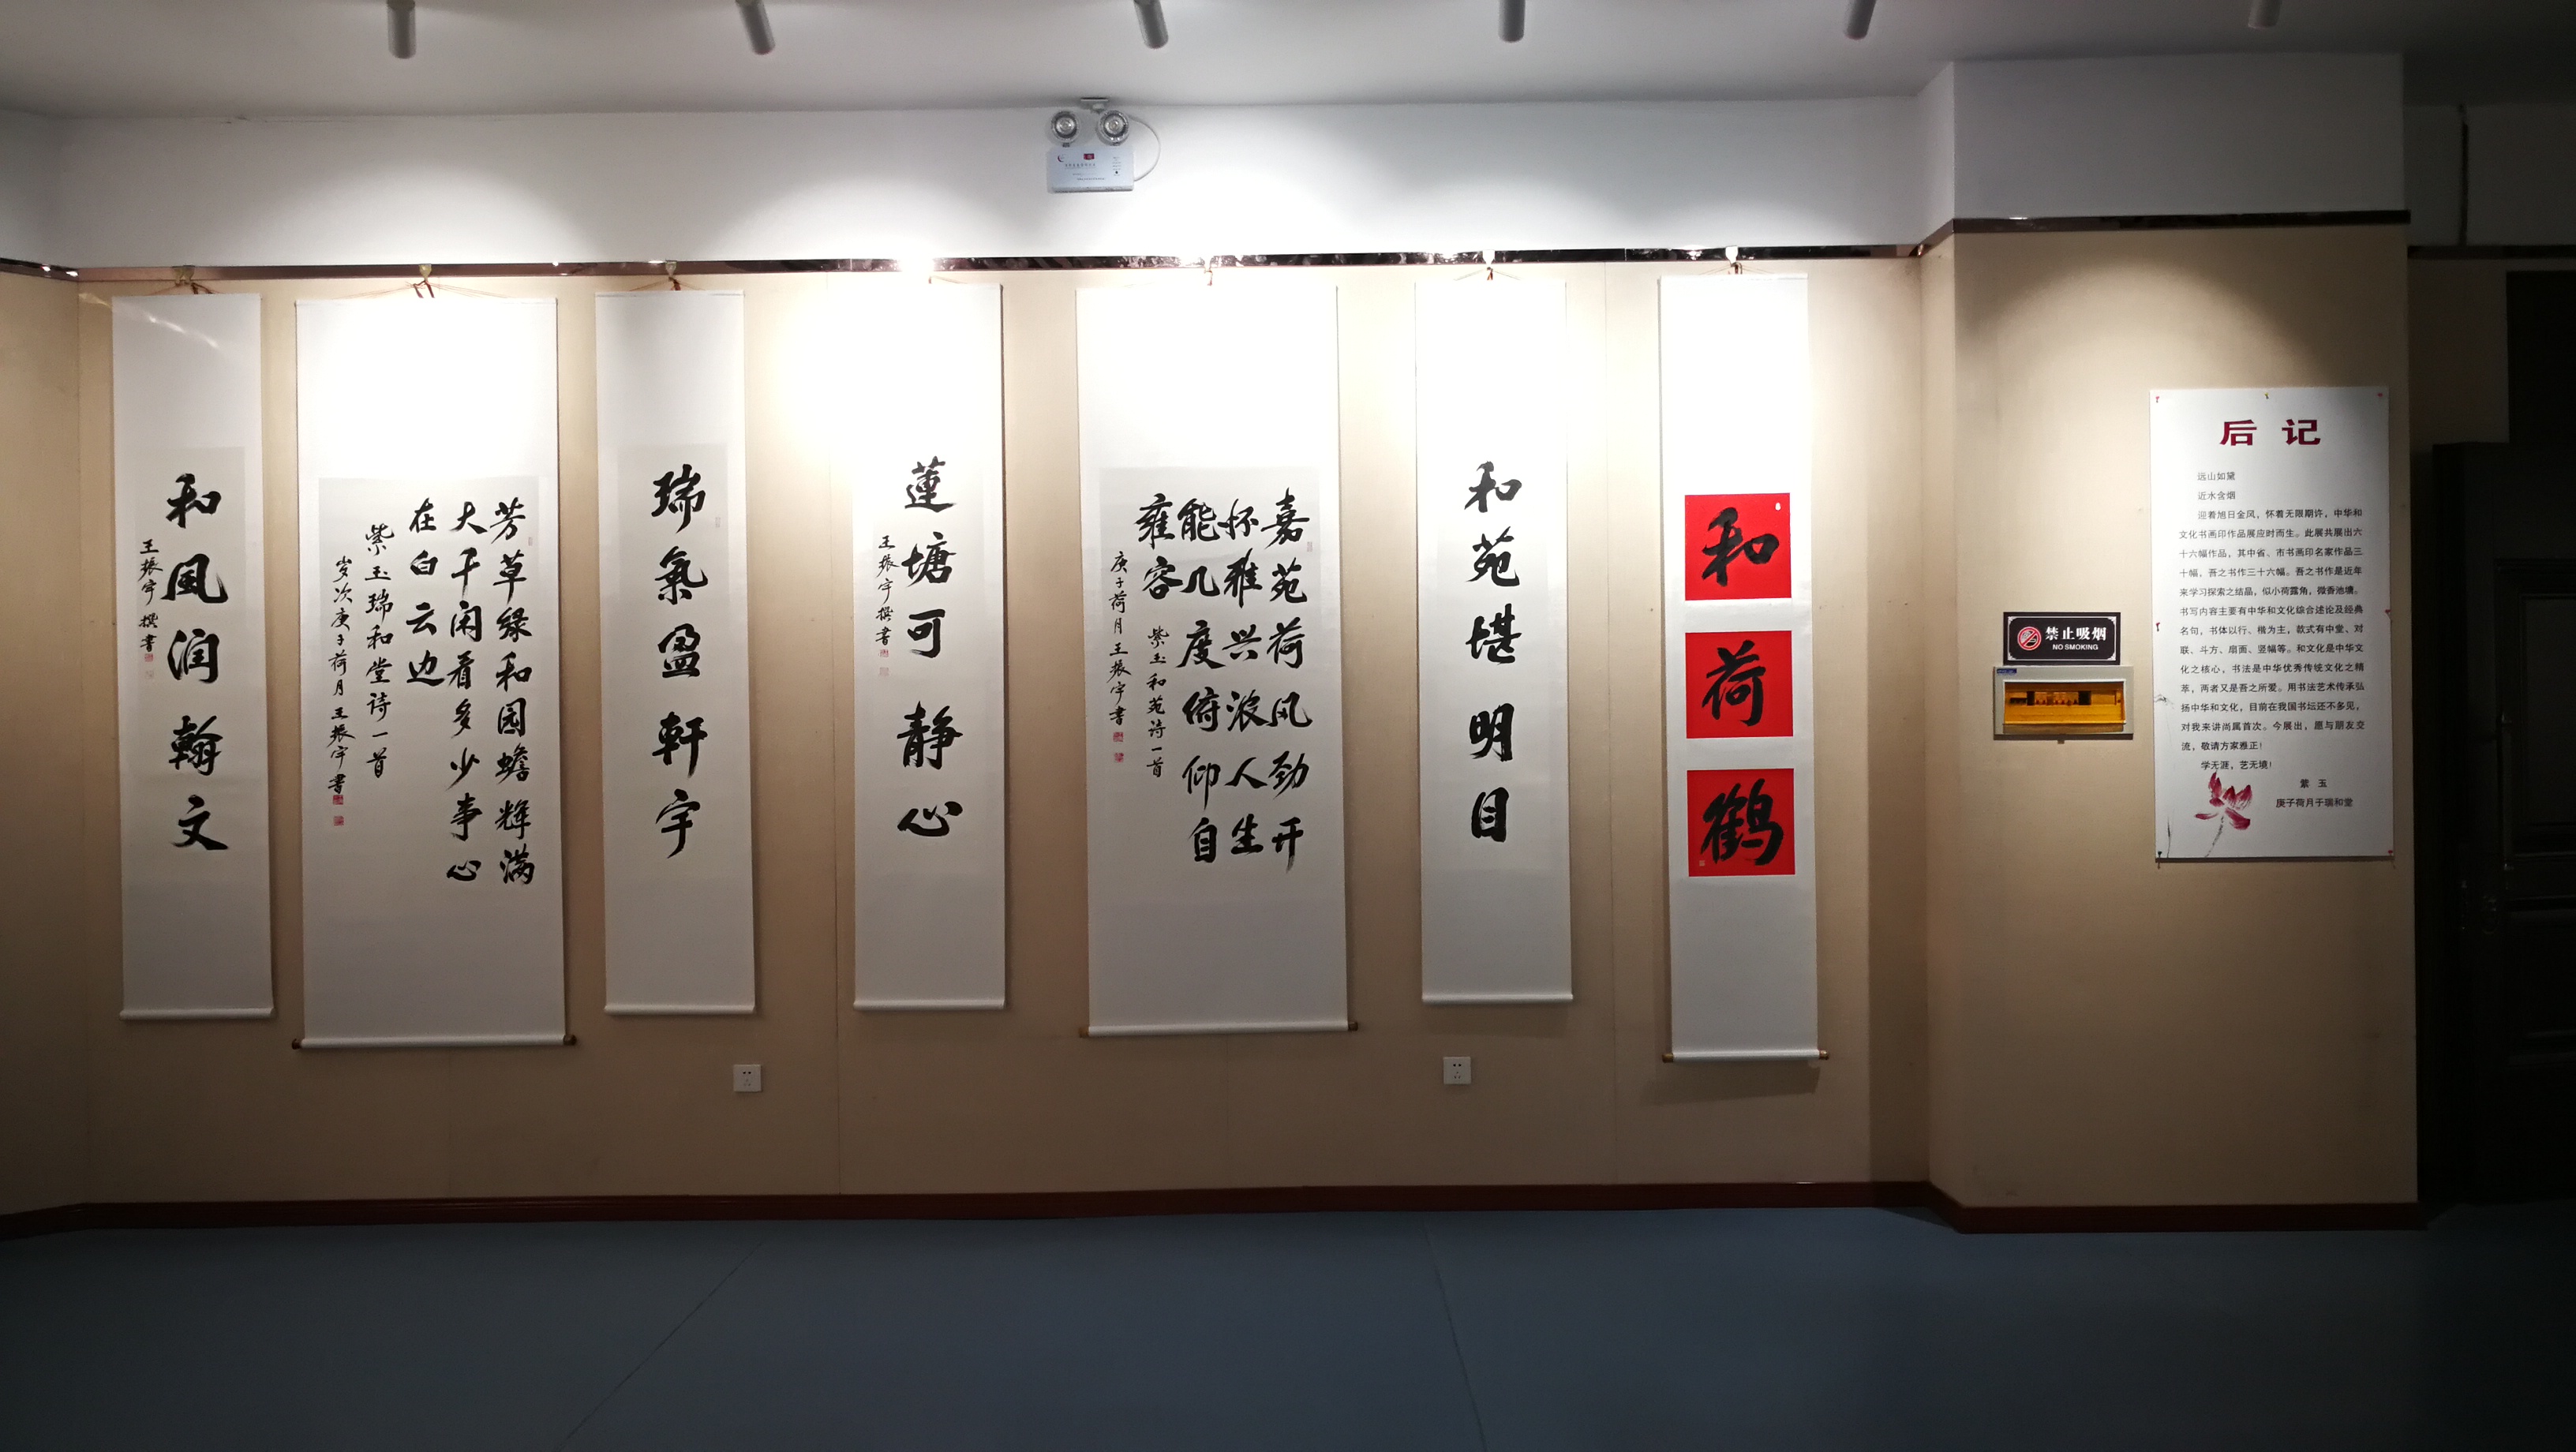 和风润翰文
王振宇撰书
芳草缘和园蟾辉满
大千闲看多少事心
在白云边
紫玉瑞和堂诗一首
岁次庚子荷月王振宇书
瑞氣盈軒宇
蓮塘可静心
王振宇撰書
嘉苑荷风劲开
怀雅兴浓人生
能几度俯仰自
雍容
紫玉和苑诗一首
庚子荷月王振宇書
和苑堪明目
和
荷
鹤
禁止吸烟
NO SMOKING
后记
远山如黛
近水含烟
迎着旭日金风，怀着无限期许，中华和
文化书画印作品展应时而生。此展共展出六
十六幅作品，其中省、市书画印名家作品三
十幅，吾之书作三十六幅。吾之书作是近年
来学习探索之结晶，似小荷露角，微香池塘。
书写内容主要有中华和文化综合述论及经典
名句，书体以行、楷为主，款式有中堂、对
联、斗方、扇面、竖幅等。和文化是中华文
化之核心，书法是中华优秀传统文化之精
萃，两者又是吾之所爱。用书法艺术传承弘
扬中华和文化，目前在我国书坛还不多见，
对我来讲尚属首次。今展出，愿与朋友交
流，敬请方家雅正！
学无涯，艺无境！
紫玉
庚子荷月于瑞和堂